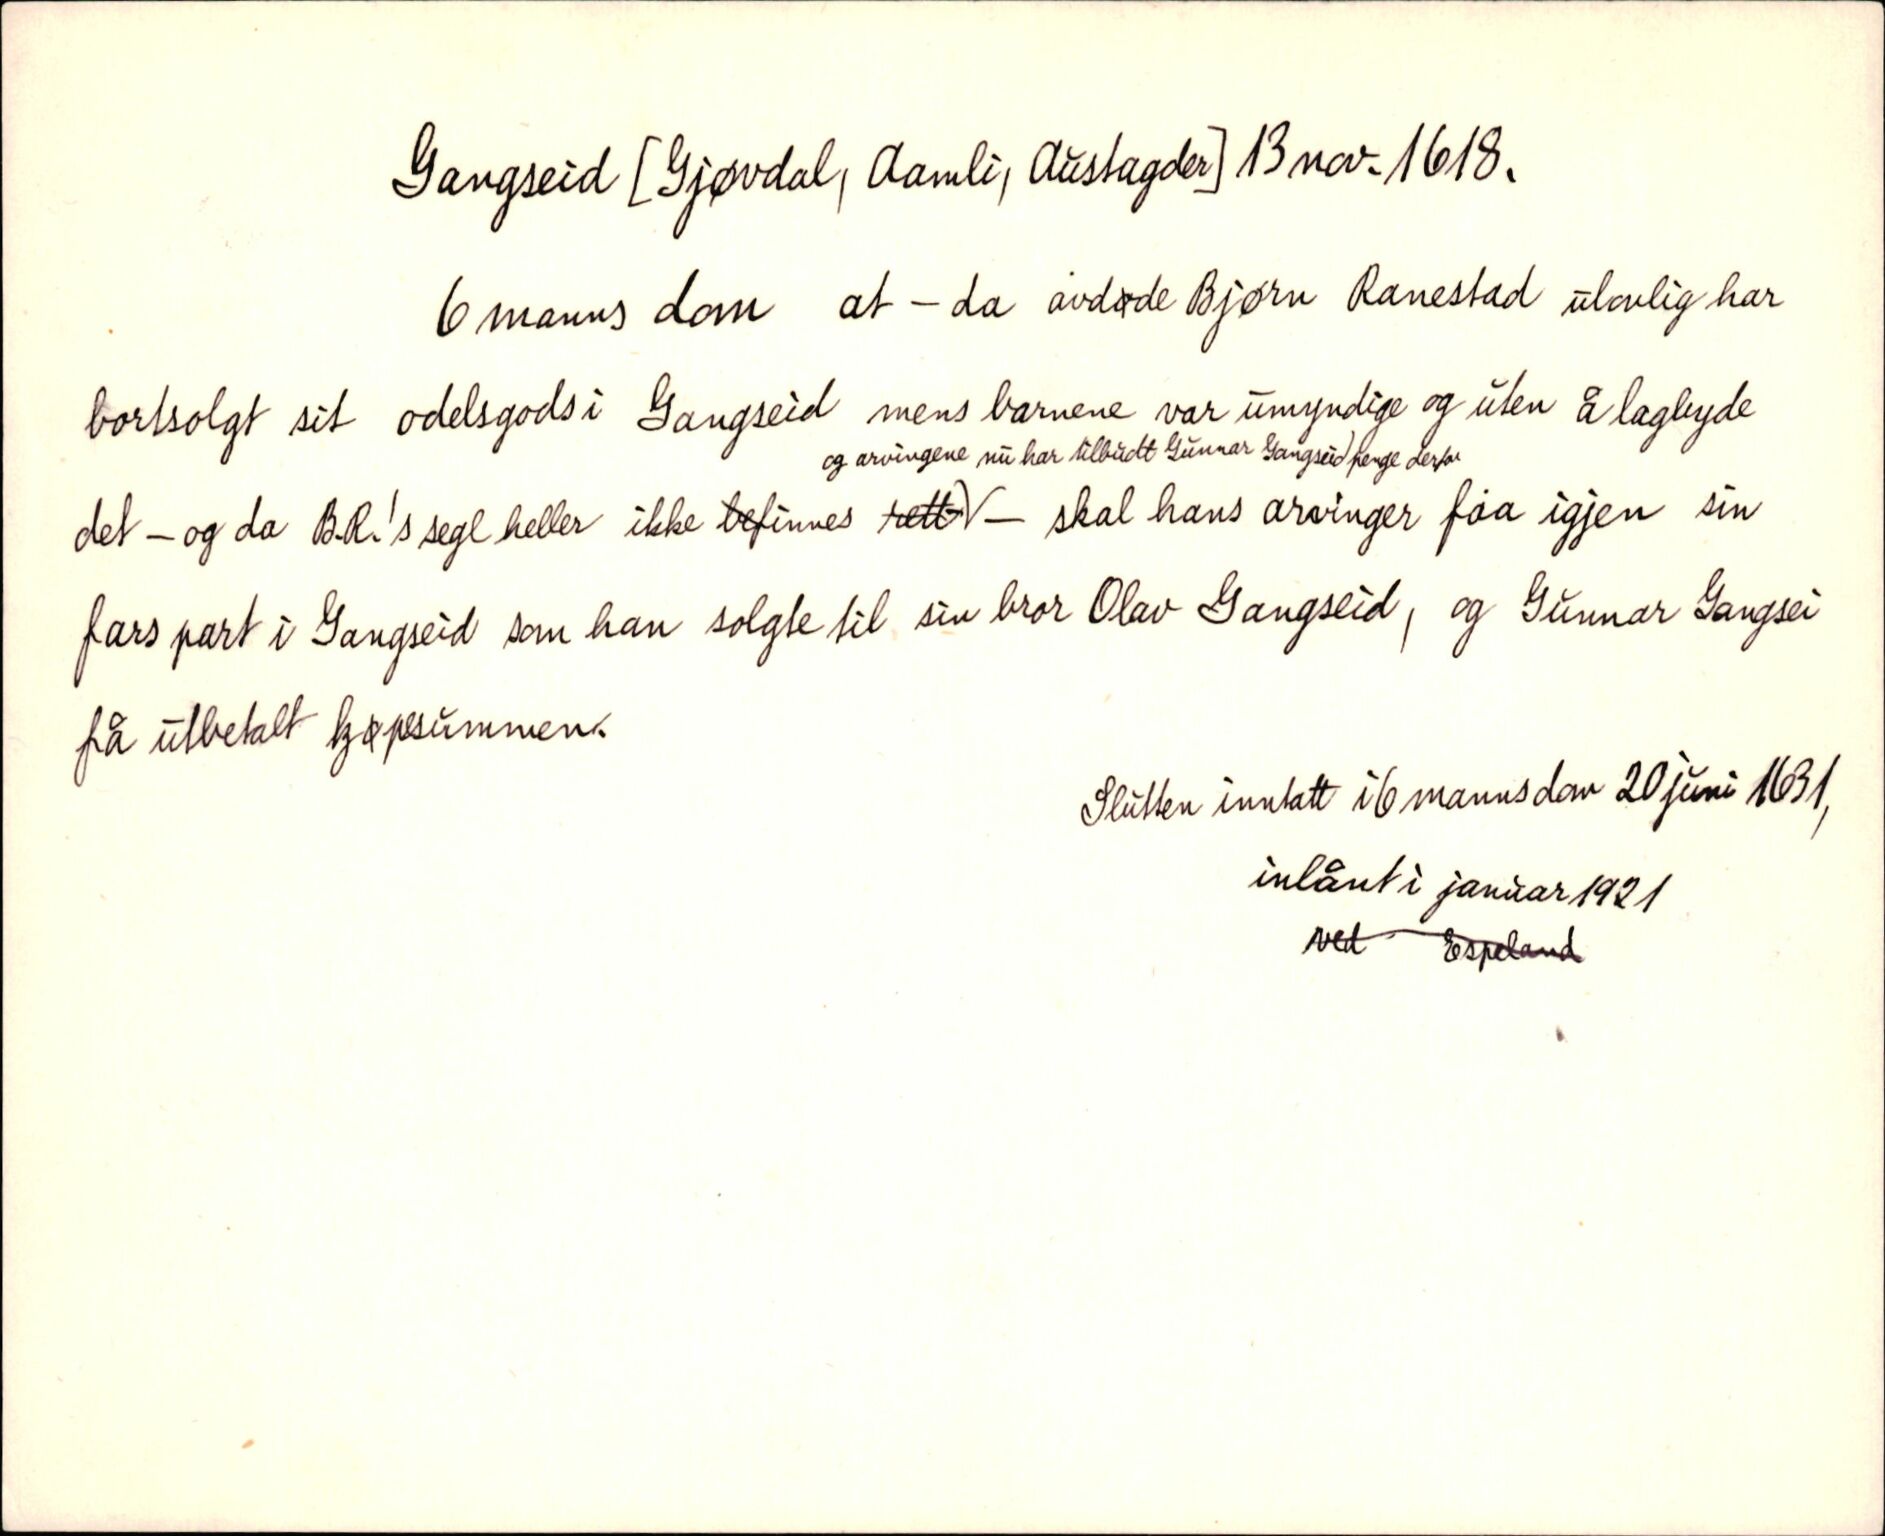 Gangseid [Gjøvdal, Aamli, Austagder] 13 nov. 1618.
6 manns dom at – da avdøde Bjørn Ranestad ulovlig har
bortsolgt sit odelsgods i Gangseid mens barnene var umyndige og uten å lagbyde
og arvingene nu har tilbudt Gunnar Gangseid penge derfor
det – og da B.R.'s segl heller ikke befinnes rett – skal hans arvinger faa igjen sin
fars part i Gangseid som han solgte til sin bror Olav Gangseid, og Gunnar Gangsei
få utbetalt kjøpesummen.
Slutten inntatt i 6 mannsdom 20 juni 1631,
inlånt i januar 1921
ved Espeland